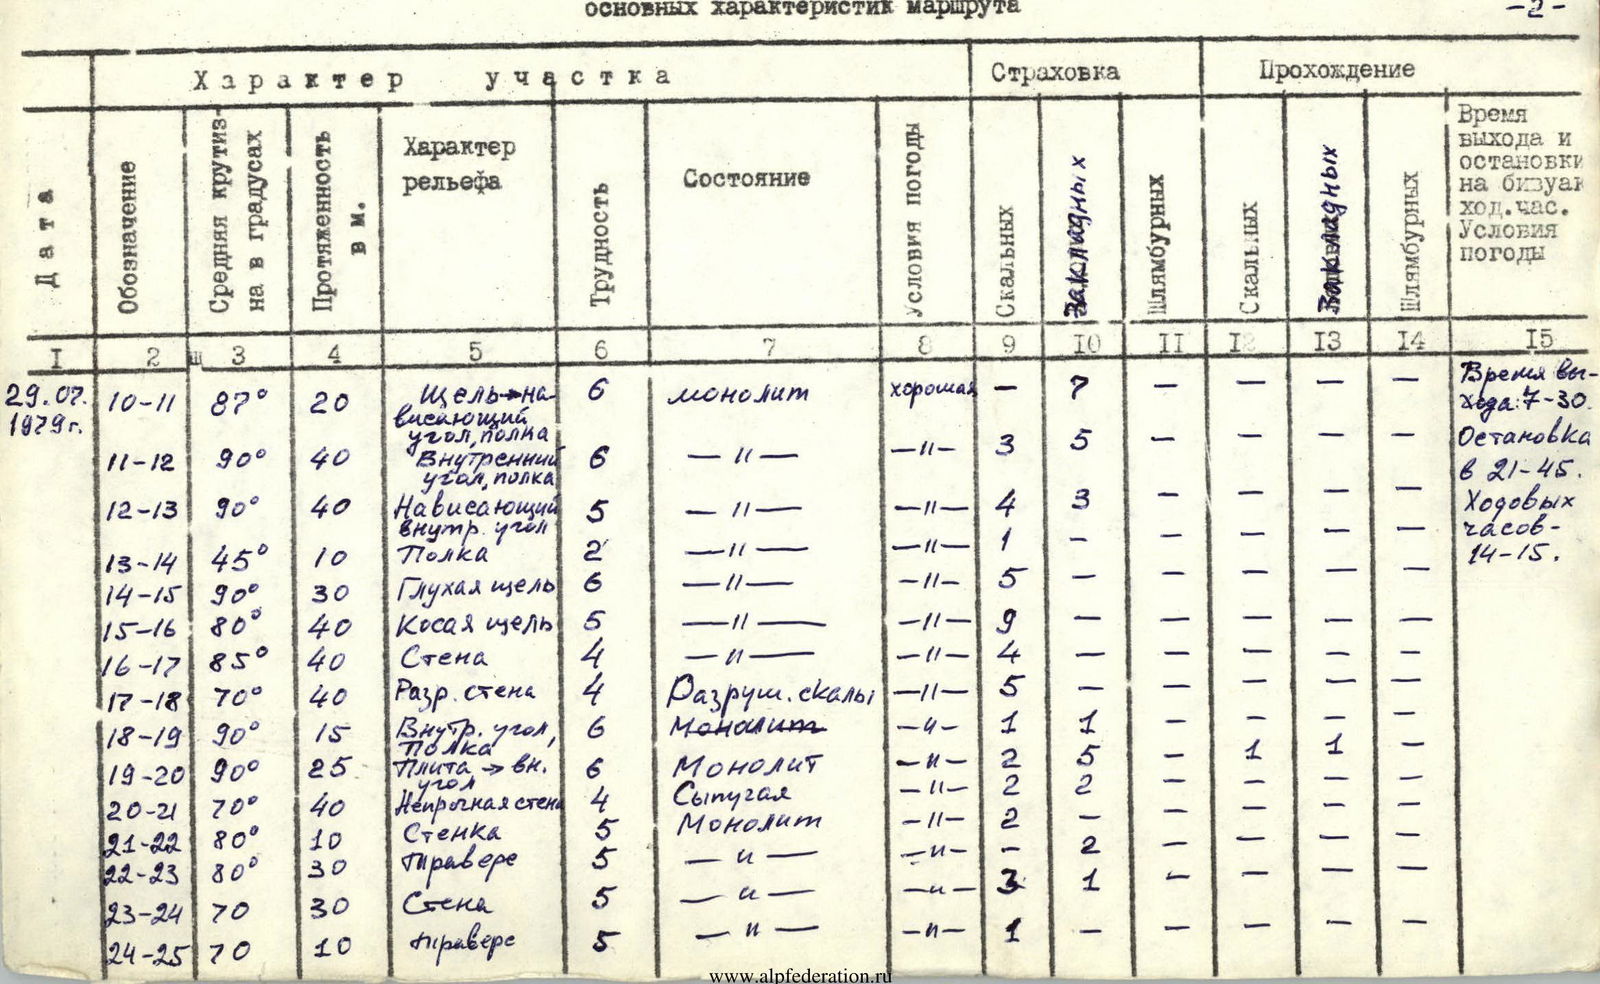 основных характеристик маршрута -2-
Характер участка Страховка Прохождение
Дата Обозначение Средняя крутизна в градусах Протяженность в м. Характер рельефа Трудность Состояние Условия погоды Скальных Закладных Шлямбурных Скальных Закладных Шлямбурных Время выхода и остановки на бивуак ход.час. Условия погоды
I 2 3 4 5 6 7 8 9 I0 II I2 I3 I4 I5
29.07. 1979г. 10-11 87° 20 Щель→нависающий угол, полка 6 монолит хорошая — 7 — — — — Время выхода: 7-30.
11-12 90° 40 Внутренний угол, полка 6 —"— —"— 3 5 — — — — Остановка в 21-45.
12-13 90° 40 Нависающий внутр. угол 5 —"— —"— 4 3 — — — — Ходовых часов-
13-14 45° 10 Полка 2 —"— —"— 1 - — — — — 14-15.
14-15 90° 30 Глухая щель 6 —"— —"— 5 — — — — —
15-16 80° 40 Косая щель 5 —"— —"— 9 — — — — —
16-17 85° 40 Стена 4 —"— —"— 4 — — — — —
17-18 70° 40 Разр. стена 4 Разруш. скалы —"— 5 — — — — —
18-19 90° 15 Внутр. угол, Полка 6 Монолит —"— 1 1 — — — —
19-20 90° 25 Плита → вн. угол 6 Монолит —"— 2 5 — 1 1 —
20-21 70° 40 Непрочная стена 4 Сыпучая —"— 2 2 — — — —
21-22 80° 10 Стенка 5 Монолит —"— 2 - — — — —
22-23 80° 30 Траверс 5 —"— —"— - 2 — — — —
23-24 70 30 Стена 5 —"— —"— 3 1 — — — —
24-25 70 10 Траверс 5 —"— —"— 1 — — — — —
www.alpfederation.ru